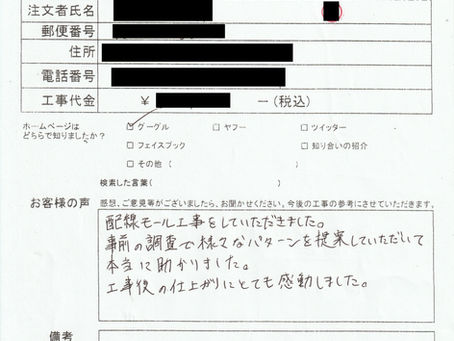 注文者氏名
郵便番号
住所
電話番号
工事代金 ￥ ー(税込)
ホームページは
どちらで知りましたか？
□グーグル □ヤフー □ツイッター
□フェイスブック □知り合いの紹介
□その他 ( )
検索した言葉( )
お客様の声 感想、ご意見等がございましたら、お聞かせください。今後の工事の参考にさせていただきます。
配線モール工事をしていただきました。
事前の調査で様々なパターンを提案していただいて
本当に助かりました。
工事後の仕上がりにとても感動しました。
備考